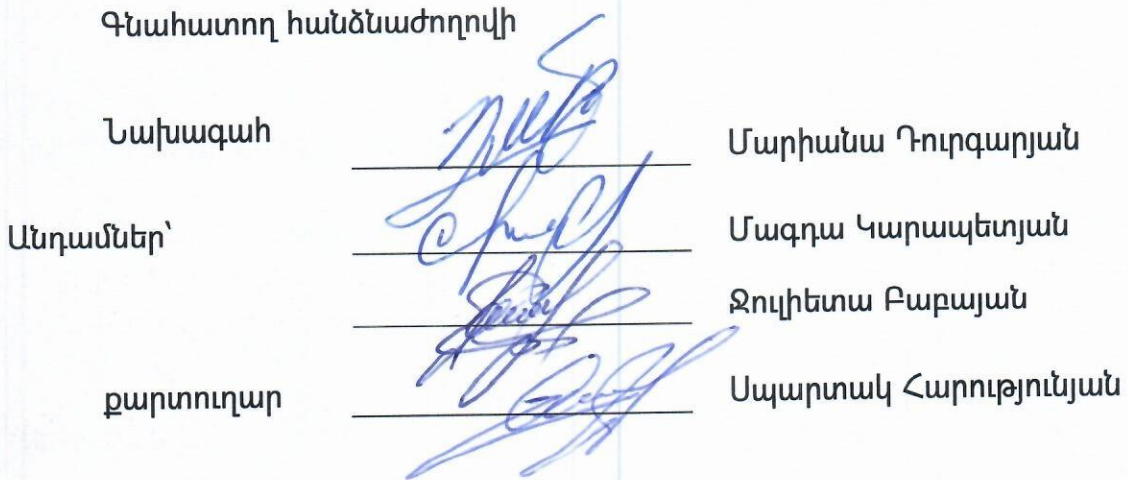 Գնահատող հանձնաժողովի
Նախագահ Մարիանա Դուրգարյան
Անդամներ՝ Մագդա Կարապետյան
Ջուլիետա Բաբայան
քարտուղար Սպարտակ Հարությունյան